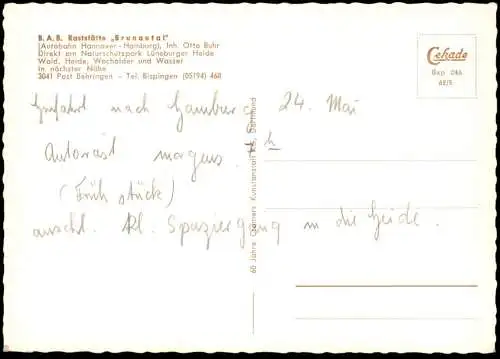 B.A.B. Raststätte „Brunautal"
(Autobahn Hannover - Hamburg), Inh. Otto Buhr
Direkt am Naturschutzpark Lüneburger Heide
Wald, Heide, Wacholder und Wasser
in nächster Nähe
3041 Post Behringen - Tel. Bispingen (05194) 468
Cekade
Bxp 046
60 Jahre Cramers Kunstanstalt KG, Dortmund
nach Hamburg 24. Mai
Autorast morgens h
(Frühstück)
anschl. kl. Spaziergang in die Heide.